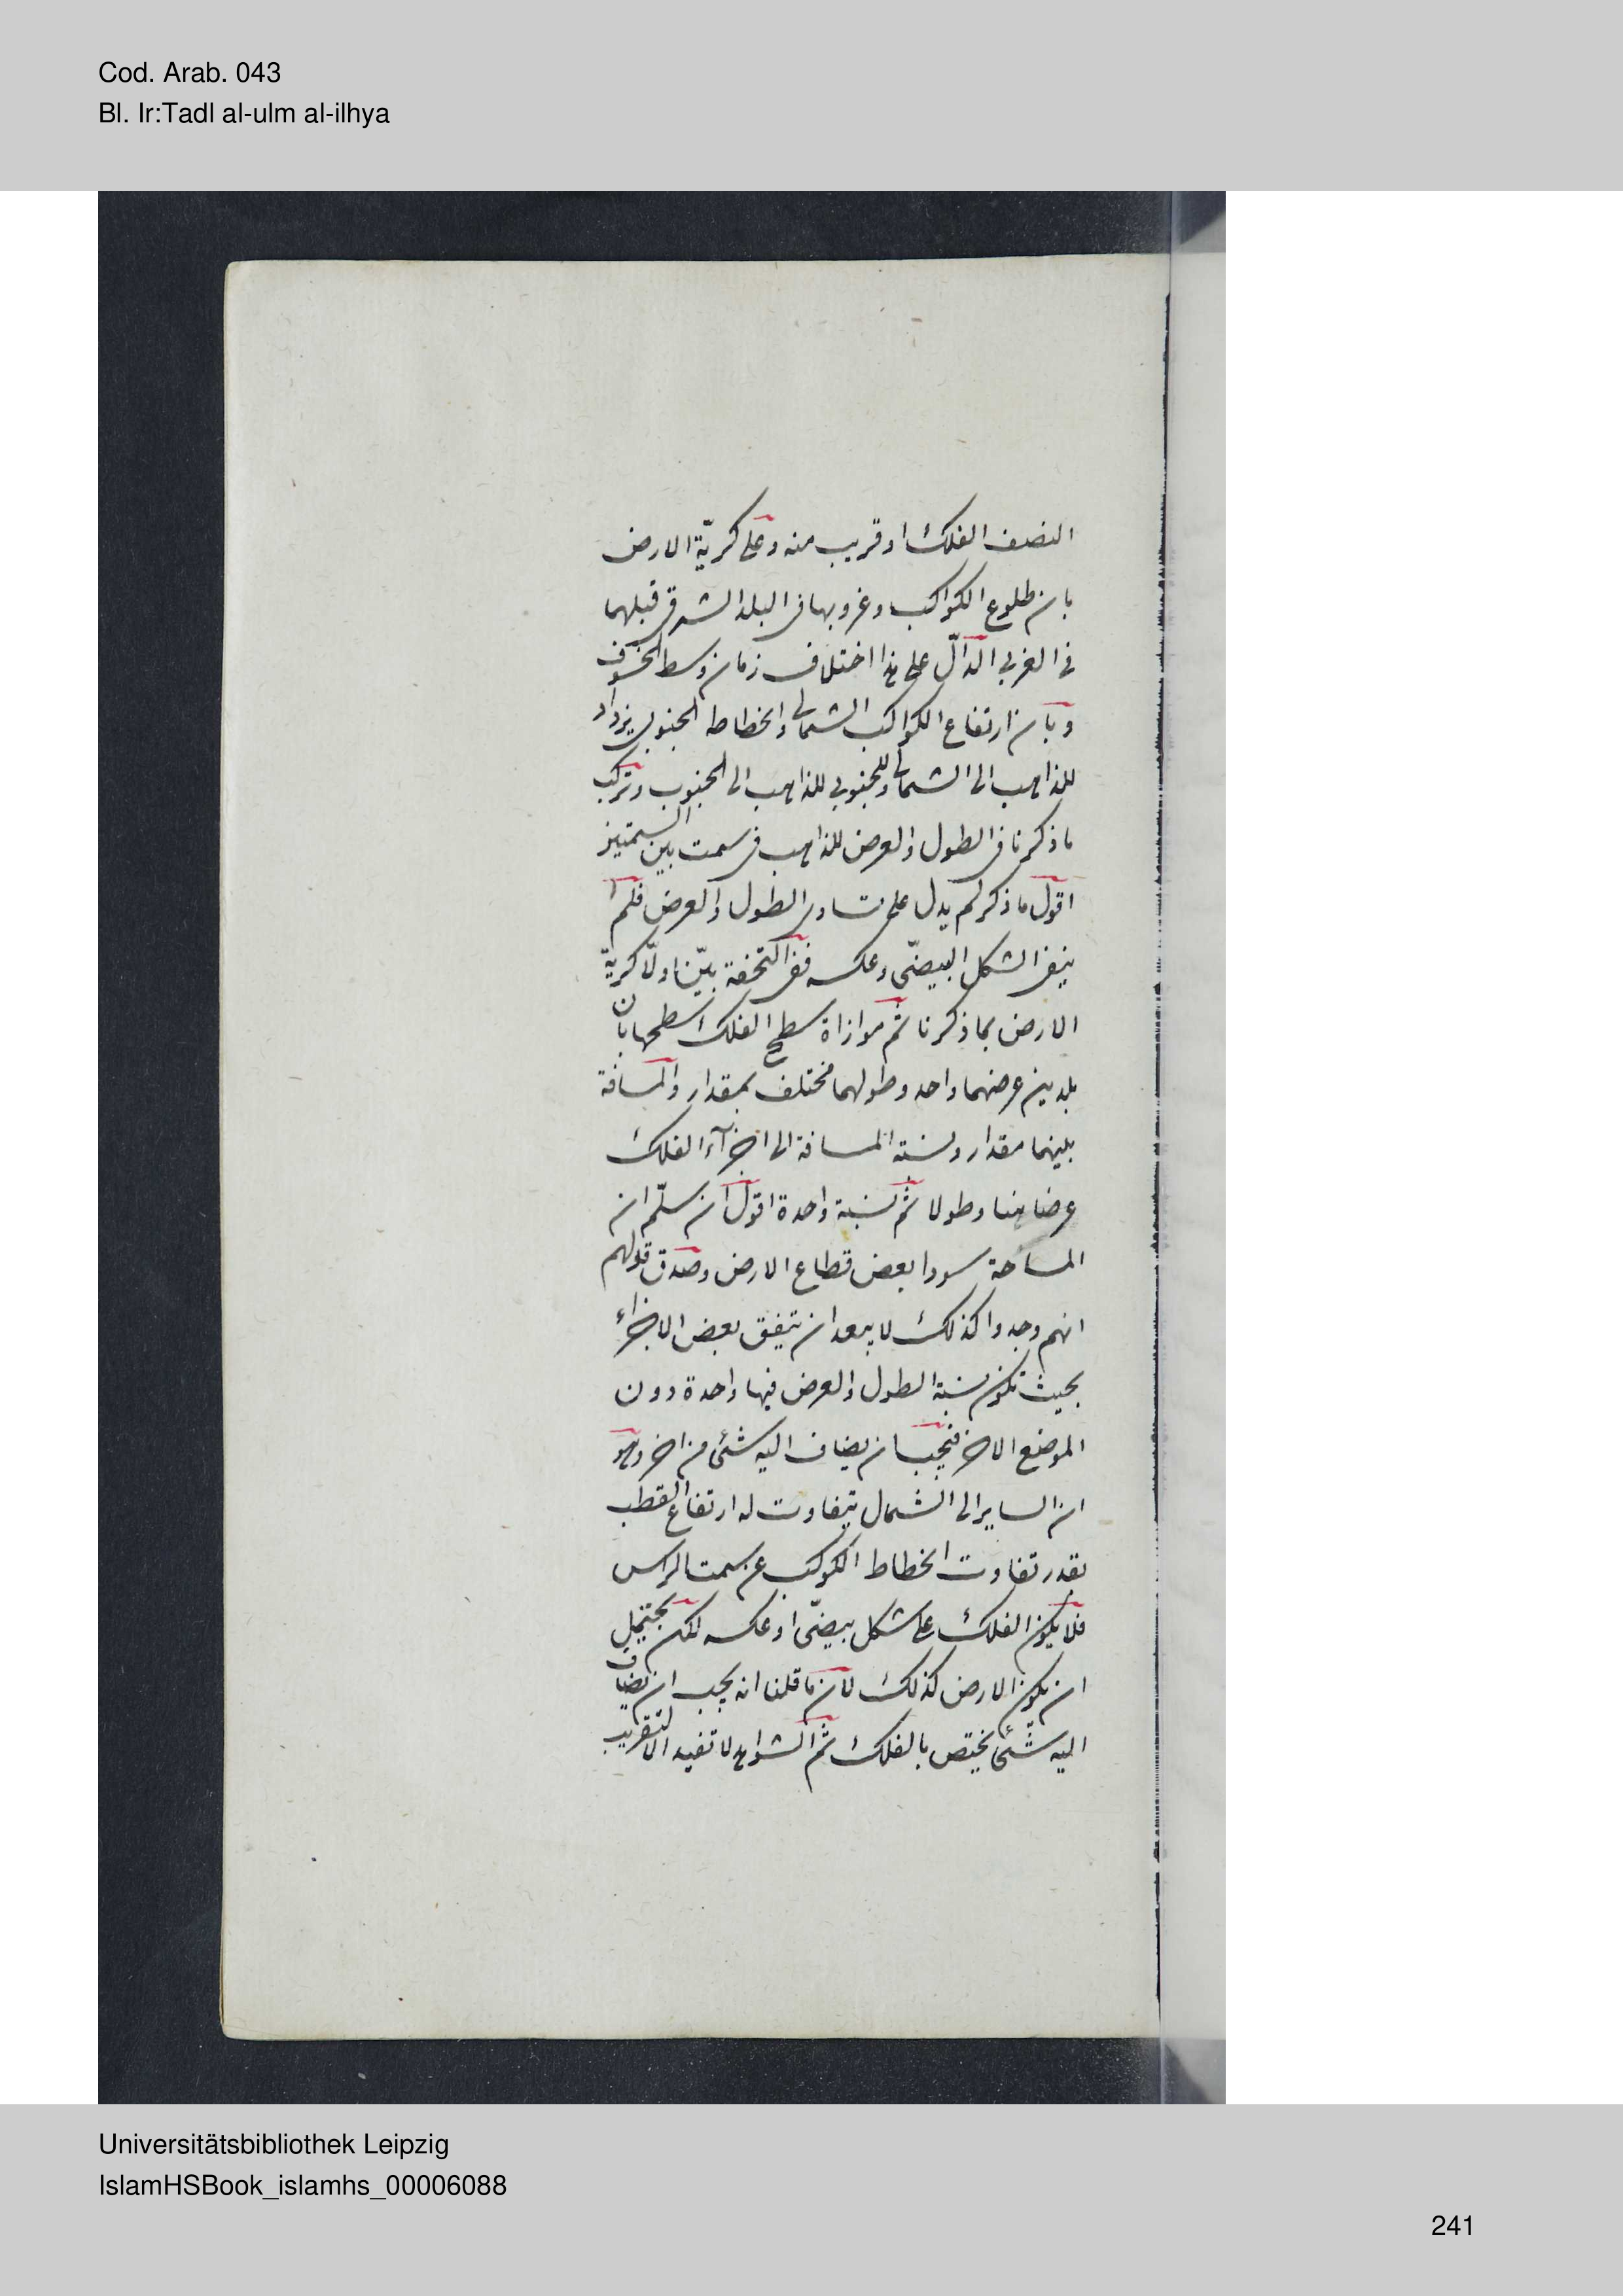 Cod. Arab. 043
Bl. Ir:Tadl al-ulm al-ilhya
النصف الفلك او قريب منه وعلى كريّة الارض
بان طلوع الكواكب وغروبها فى البلد الشرقى قبلهما
فى الغربى الدالّ على هذا اختلاف زمان وسط الخسوف
وبان ارتفاع الكواكب الشمالى وانحطاط الجنوبى يزداد
للذاهب الى الشمال وللجنوبى للذاهب الى الجنوب وتركب
ما ذكرنا فى الطول والعرض للذاهب فى سمت بين السمتين
اقول ما ذكر لم يدل على تساوى الطول والعرض فلم
ينف الشكل البيضىّ وعكسه ففى التحفة بيّن اولا كريّة
الارض بما ذكرنا ثم موازاة سطح الفلك لسطحها بان
بلدين عرضهما واحد وطولهما مختلف بمقدار والمسافة
بينهما مقدار ونسبة المسافة الى اجزآء الفلك
عرضا هنا وطولا ثم نسبة واحدة اقول ان سلّم ان
المساحة سووا بعض قطاع الارض وصدق قولهم
انهم وجدوا كذلك لا يبعد ان يتفق بعض الاجزاء
بحيث تكون نسبة الطول والعرض فيها واحدة دون
الموضع الاخر فيجب ان يضاف اليه شئ من اخر وهو
ان الساير الى الشمال يتفاوت له ارتفاع القطب
بقدر تفاوت انحطاط الكوكب عن سمت الراس
فلا يكون الفلك على شكل بيضىّ او عكسه لكن يحتمل
ان يكون الارض كذلك لان ما قلنا انه يجب ان يضاف
اليه شئ يختص بالفلك ثم الشواهد لا تفيد الا التقريب
Universitätsbibliothek Leipzig
IslamHSBook_islamhs_00006088
241